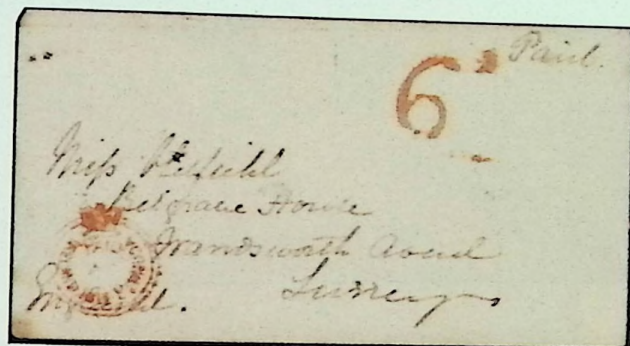 Paid.
6
Miss
Belgrave House
Wandsworth Road
Surrey
England.